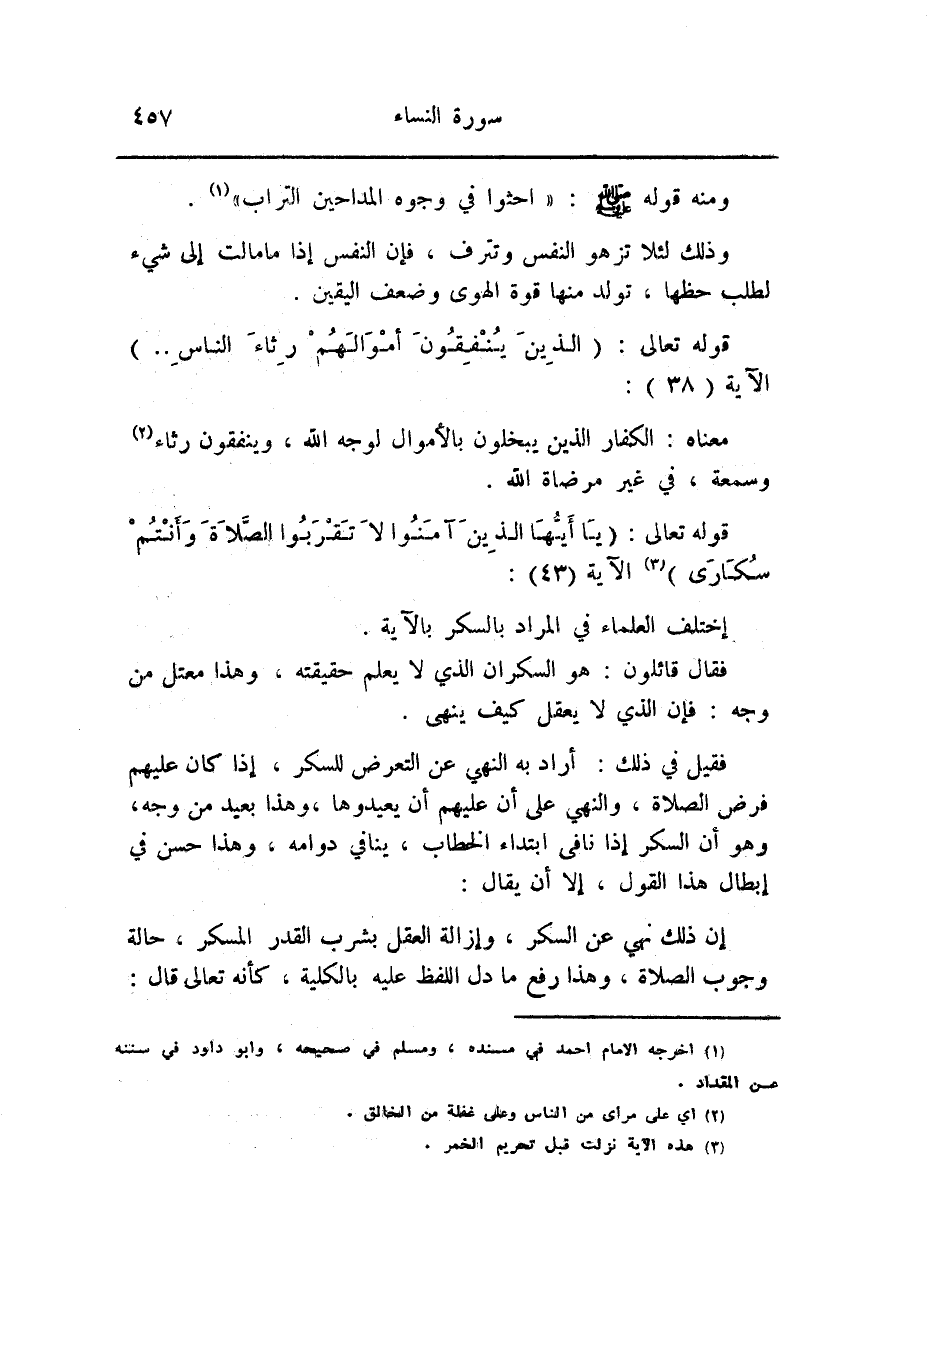 سورة النساء ٤٥٧
ومنه قوله ﷺ : « احثوا في وجوه المداحين التراب»(١) .
وذلك لئلا تزهو النفس وتترف ، فإن النفس إذا مامالت إلى شيء
لطلب حظها ، تولد منها قوة الهوى وضعف اليقين .
قوله تعالى : ( الذِينَ يُنْفِقُونَ أمْوَالَهُمْ رِثاءَ الناسِ.. )
الآية ( ٣٨ ) :
معناه : الكفار الذين يبخلون بالأموال لوجه الله ، وينفقون رثاء(٢)
وسمعة ، في غير مرضاة الله .
قوله تعالى : ( يَا أَيُّهَا الذِينَ آمَنُوا لاَ تَقْرَبُوا الصَّلاَةَ وَأَنْتُمْ
سُكَارَى )(٣) الآية (٤٣) :
إختلف العلماء في المراد بالسكر بالآية .
فقال قائلون : هو السكران الذي لا يعلم حقيقته ، وهذا معتل من
وجه : فإن الذي لا يعقل كيف ينهى .
فقيل في ذلك : أراد به النهي عن التعرض للسكر ، إذا كان عليهم
فرض الصلاة ، والنهي على أن عليهم أن يعيدوها ،وهذا بعيد من وجه،
وهو أن السكر إذا نافى ابتداء الخطاب ، ينافي دوامه ، وهذا حسن في
إبطال هذا القول ، إلا أن يقال :
إن ذلك نهي عن السكر ، وإزالة العقل بشرب القدر المسكر ، حالة
وجوب الصلاة ، وهذا رفع ما دل اللفظ عليه بالكلية ، كأنه تعالى قال :
(١) اخرجه الامام احمد في مسنده ، ومسلم في صحيحه ، وابو داود في سننه
عن المقداد .
(٢) اي على مرأى من الناس وعلى غفلة من الخالق .
(٣) هذه الآية نزلت قبل تحريم الخمر .